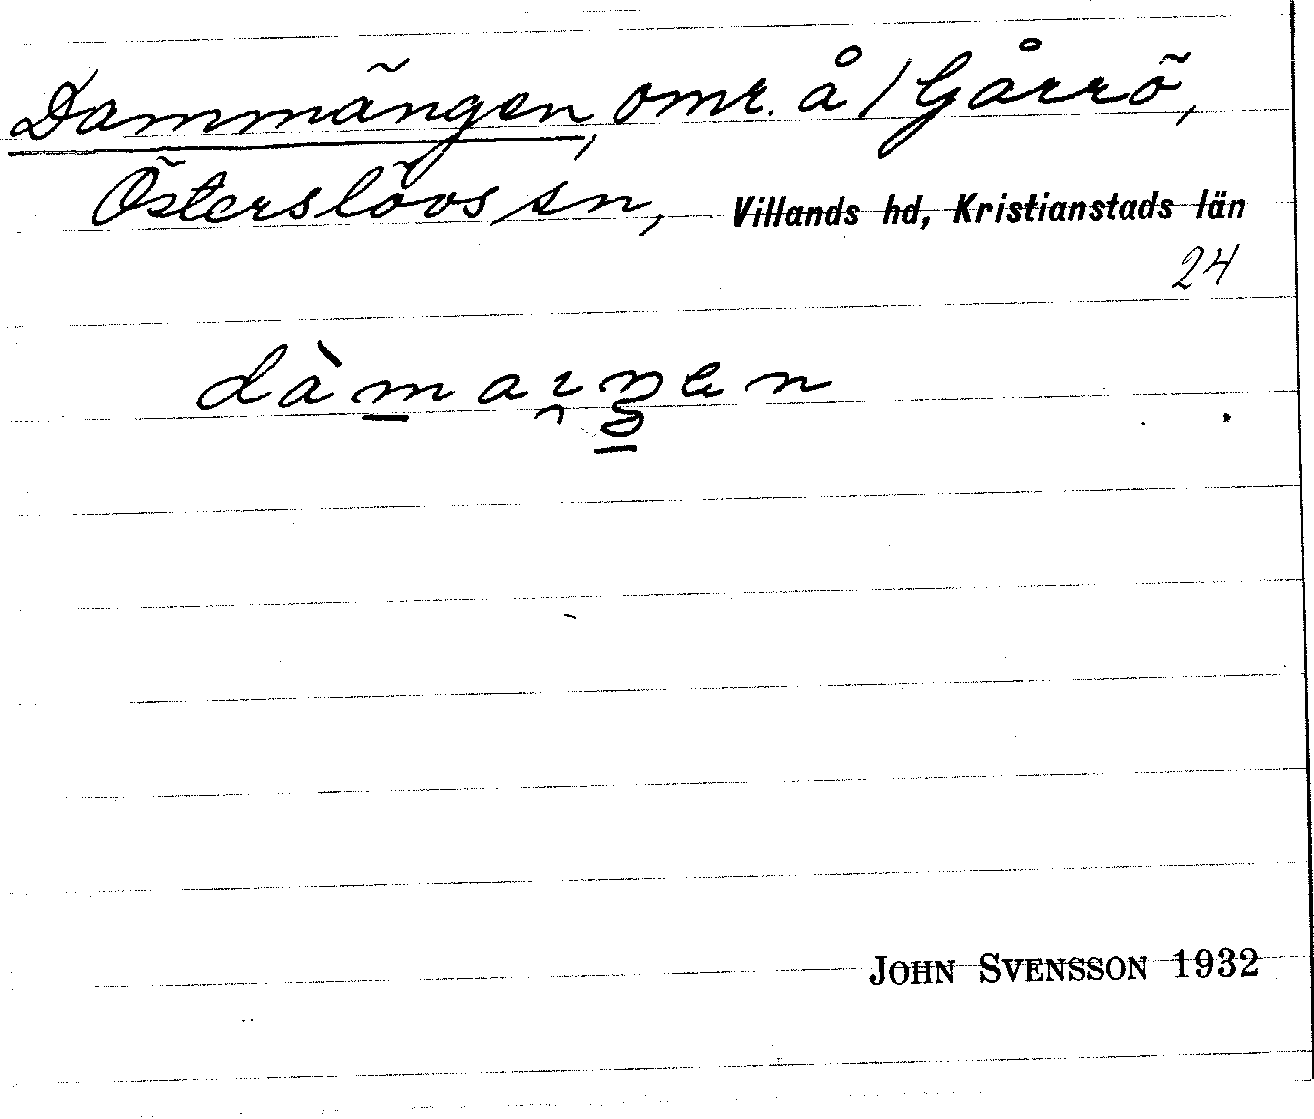 Dammängen, omr. å /Gårrö,
Österslövs sn, Villands hd, Kristianstads län
24
JOHN SVENSSON 1932